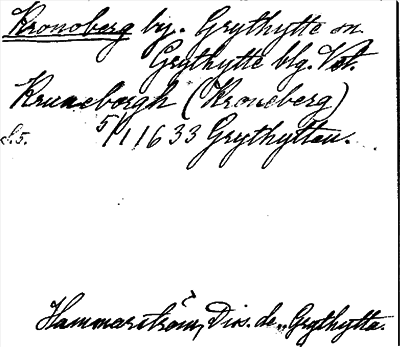 Kronoberg by. Grythytte sn
Grythytte blg. Vst.
Kruneborgh (Kroneberg)
S. 5. 5/1 1633 Grythyttan.
Hammarström, Dis. de „Grythytta.